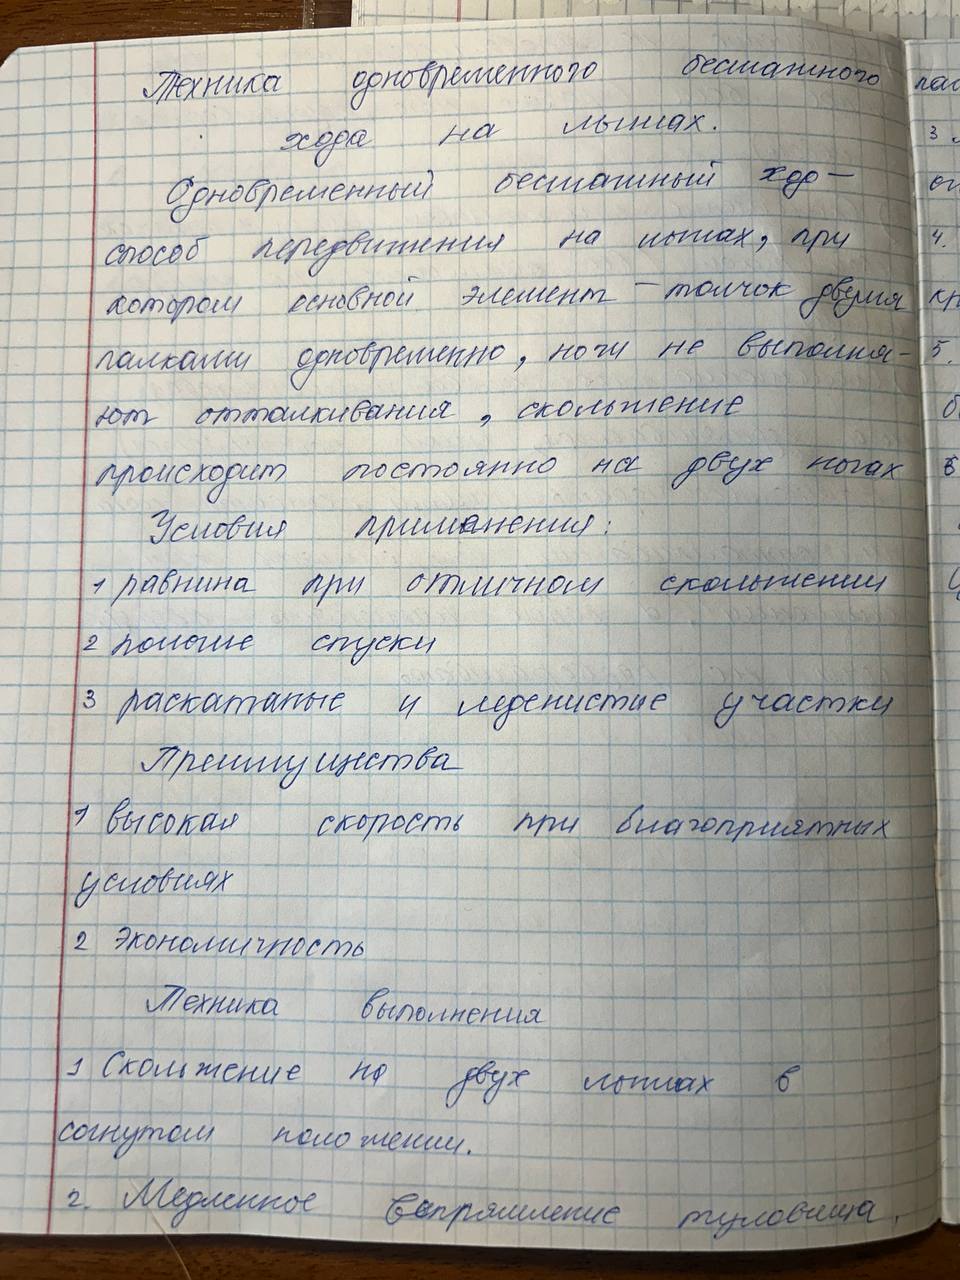 Техника одновременного бесшажного
хода на лыжах.
Одновременный бесшажный ход —
способ передвижения на лыжах, при
котором основной элемент — толчок двумя
палками одновременно, ноги не выполня-
ют отталкивания, скольжение
происходит постоянно на двух ногах
Условия применения:
1 равнина при отличном скольжении
2 пологие спуски
3 раскатаные и леденистие участки
Преимущества
1 высокая скорость при благоприятных
условиях
2 Экономичность
Техника выполнения
1 Скольжение на двух лыжах в
согнутом положении.
2. Медленное выпрямление туловища,
3
4.
5.